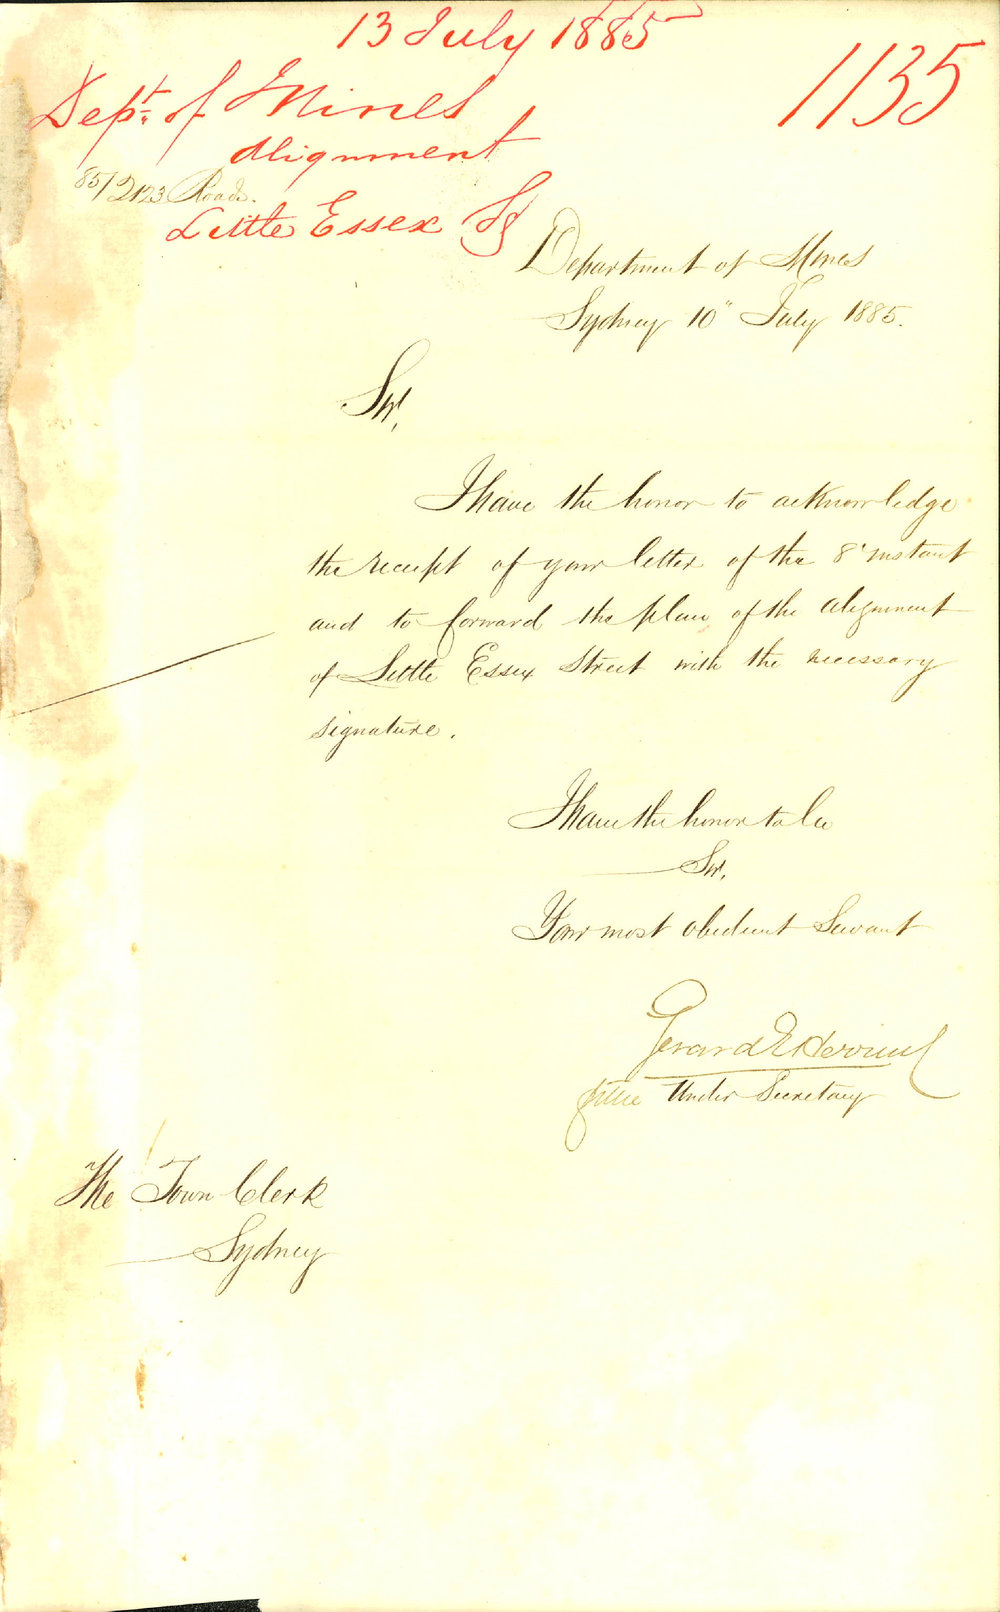 13 July 1885
1135
Dept. of Mines
Alignment
85/2123 Roads.
Little Essex St
Department of Mines
Sydney 10" July 1885.
Sir,
I have the honor to acknowledge
the receipt of your letter of the 8' instant
and to forward the plan of the alignment
of Little Essex Street with the necessary
signature.
I have the honor to be
Sir,
Your most obedient Servant
Gerard E
Under Secretary
The Town Clerk
Sydney